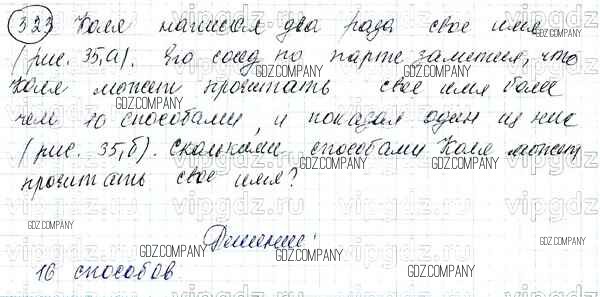 323 Коля написал два раза свое имя
(рис. 35,а). Его сосед по парте заметил, что
Коля может прочитать свое имя более
чем 10 способами, и показал один из них
(рис. 35,б). Сколькими способами Коля может
прочитать свое имя?
Решение:
16 способов